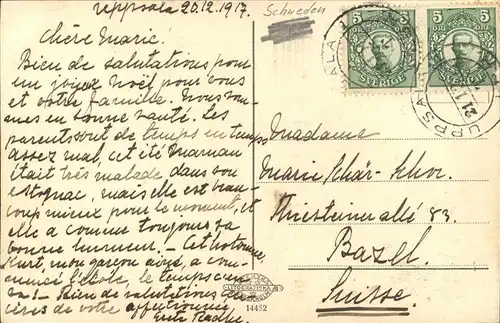 Uppsala 20.12.1917.
Chère Marie!
Bien de salutations pour
un joyeux Noël pour vous
et votre famille. Nous som-
mes en bonne santé. Les
parents sont de temps en temps
assez mal, cet été Maman
était très malade dans son
estognac, mais elle est beau-
coup mieux pour le moment, et
elle a comme toujours sa
bonne humeur. – Cet automne
Kurt, mon garçon aîné, a com-
mencé l'école, le temps
va! – Bien de salutations
de votre affectionnée
Radke.
Schweden
5 5
ÖRE
SVERIGE
5 5
ÖRE
SVERIGE
UPPSALA
21.1
Madame
Marie Schär-Schor.
Thiersteinerallé 83.
Bazel.
Suisse.
14482